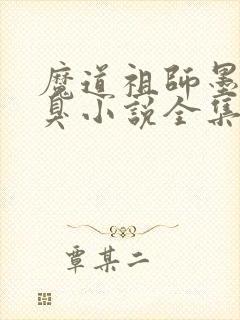 魔道祖師墨
臭小説全集
覃某二